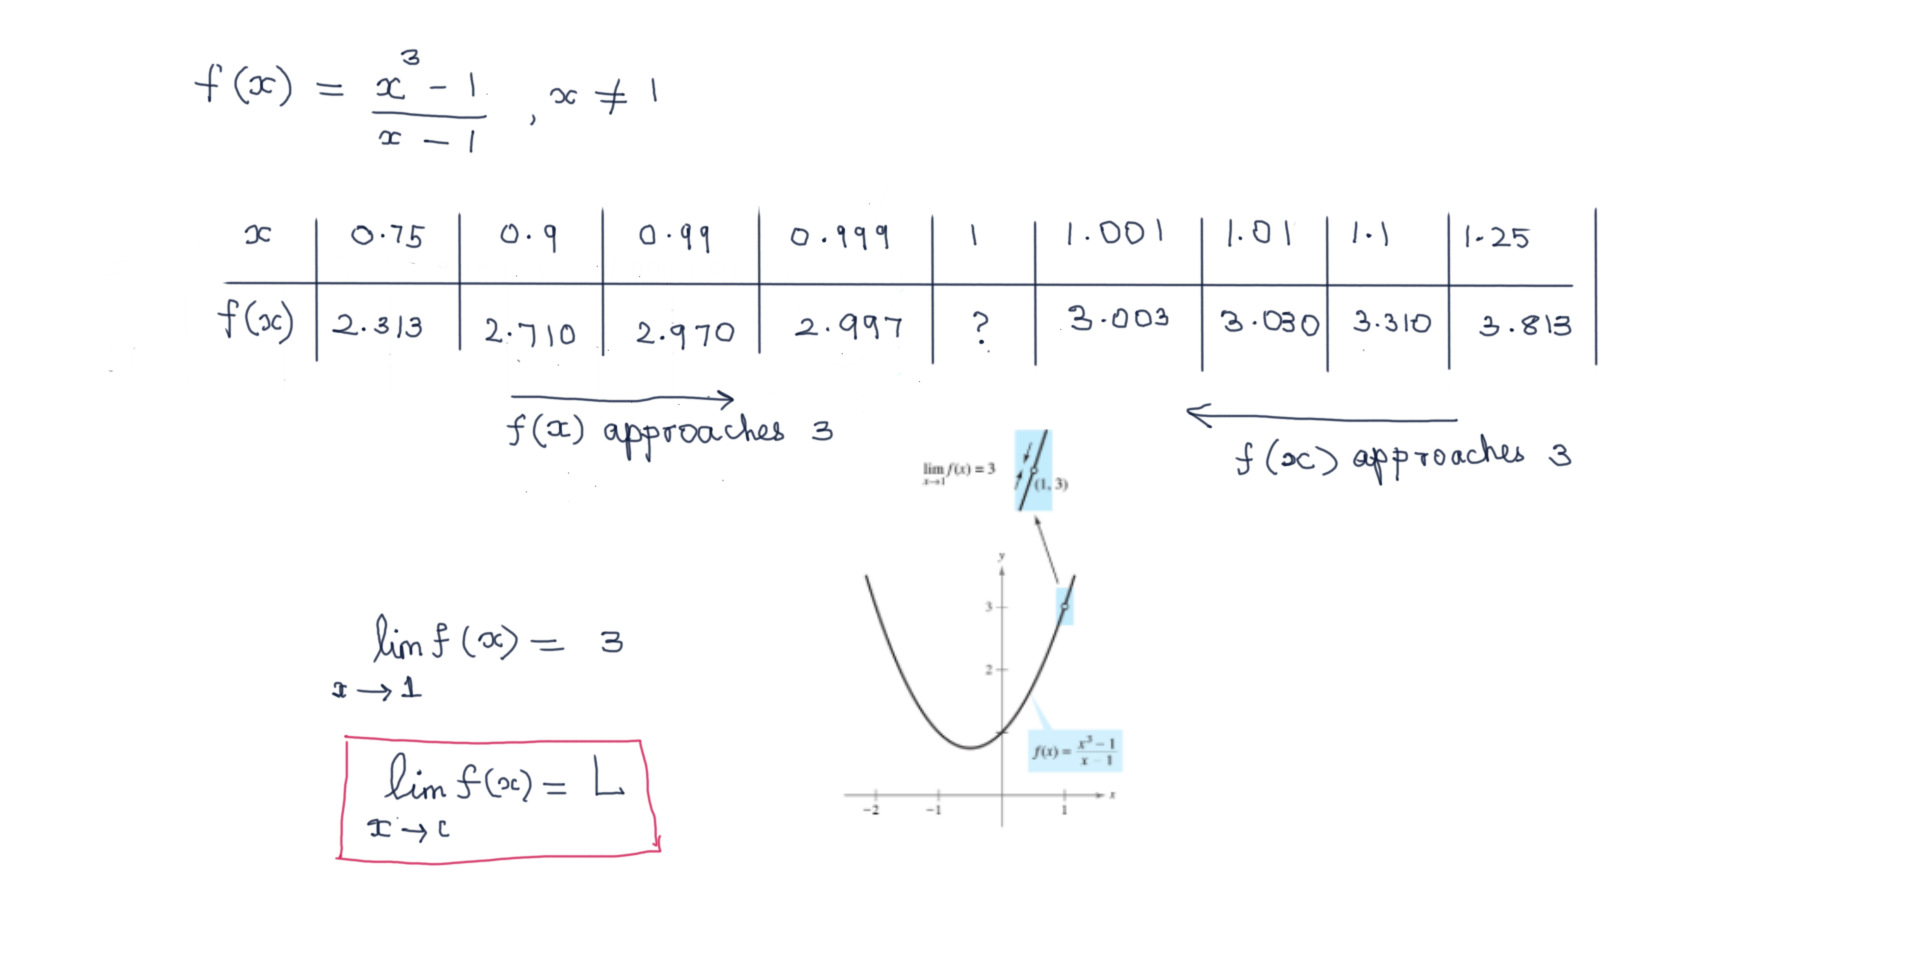 f(x) = x³ - 1 / x - 1 , x ≠ 1
x | 0.75 | 0.9 | 0.99 | 0.999 | 1 | 1.001 | 1.01 | 1.1 | 1.25
f(x) | 2.313 | 2.710 | 2.970 | 2.997 | ? | 3.003 | 3.030 | 3.310 | 3.813
f(x) approaches 3
f(x) approaches 3
lim f(x) = 3
x→1
(1, 3)
y
3
2
f(x) = x³ - 1 / x - 1
-2 -1 1 x
lim f(x) = 3
x → 1
lim f(x) = L
x → c